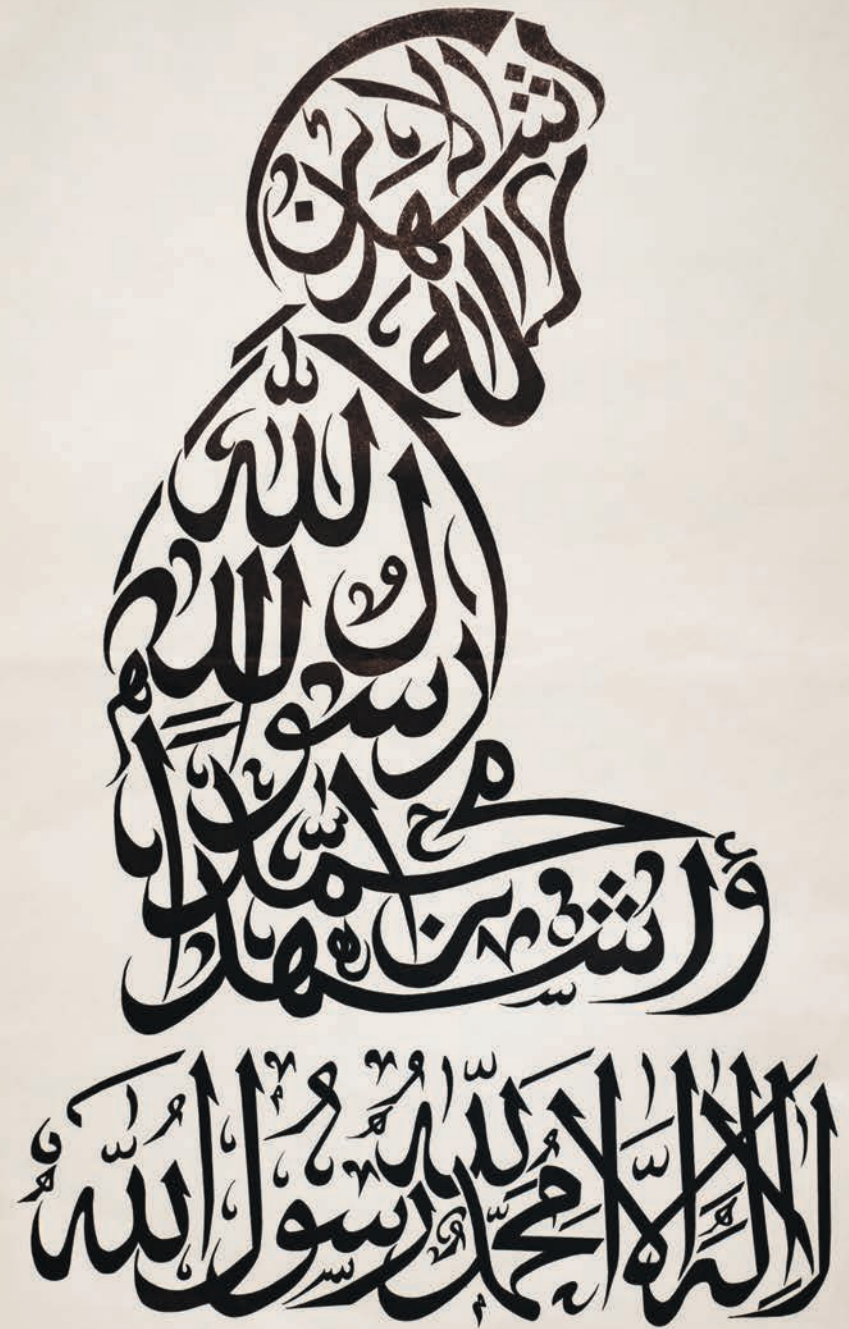 اشهد ان لا اله
الا الله
وأشهد ان
محمدا
رسول الله
لا إله إلا الله محمد رسول الله